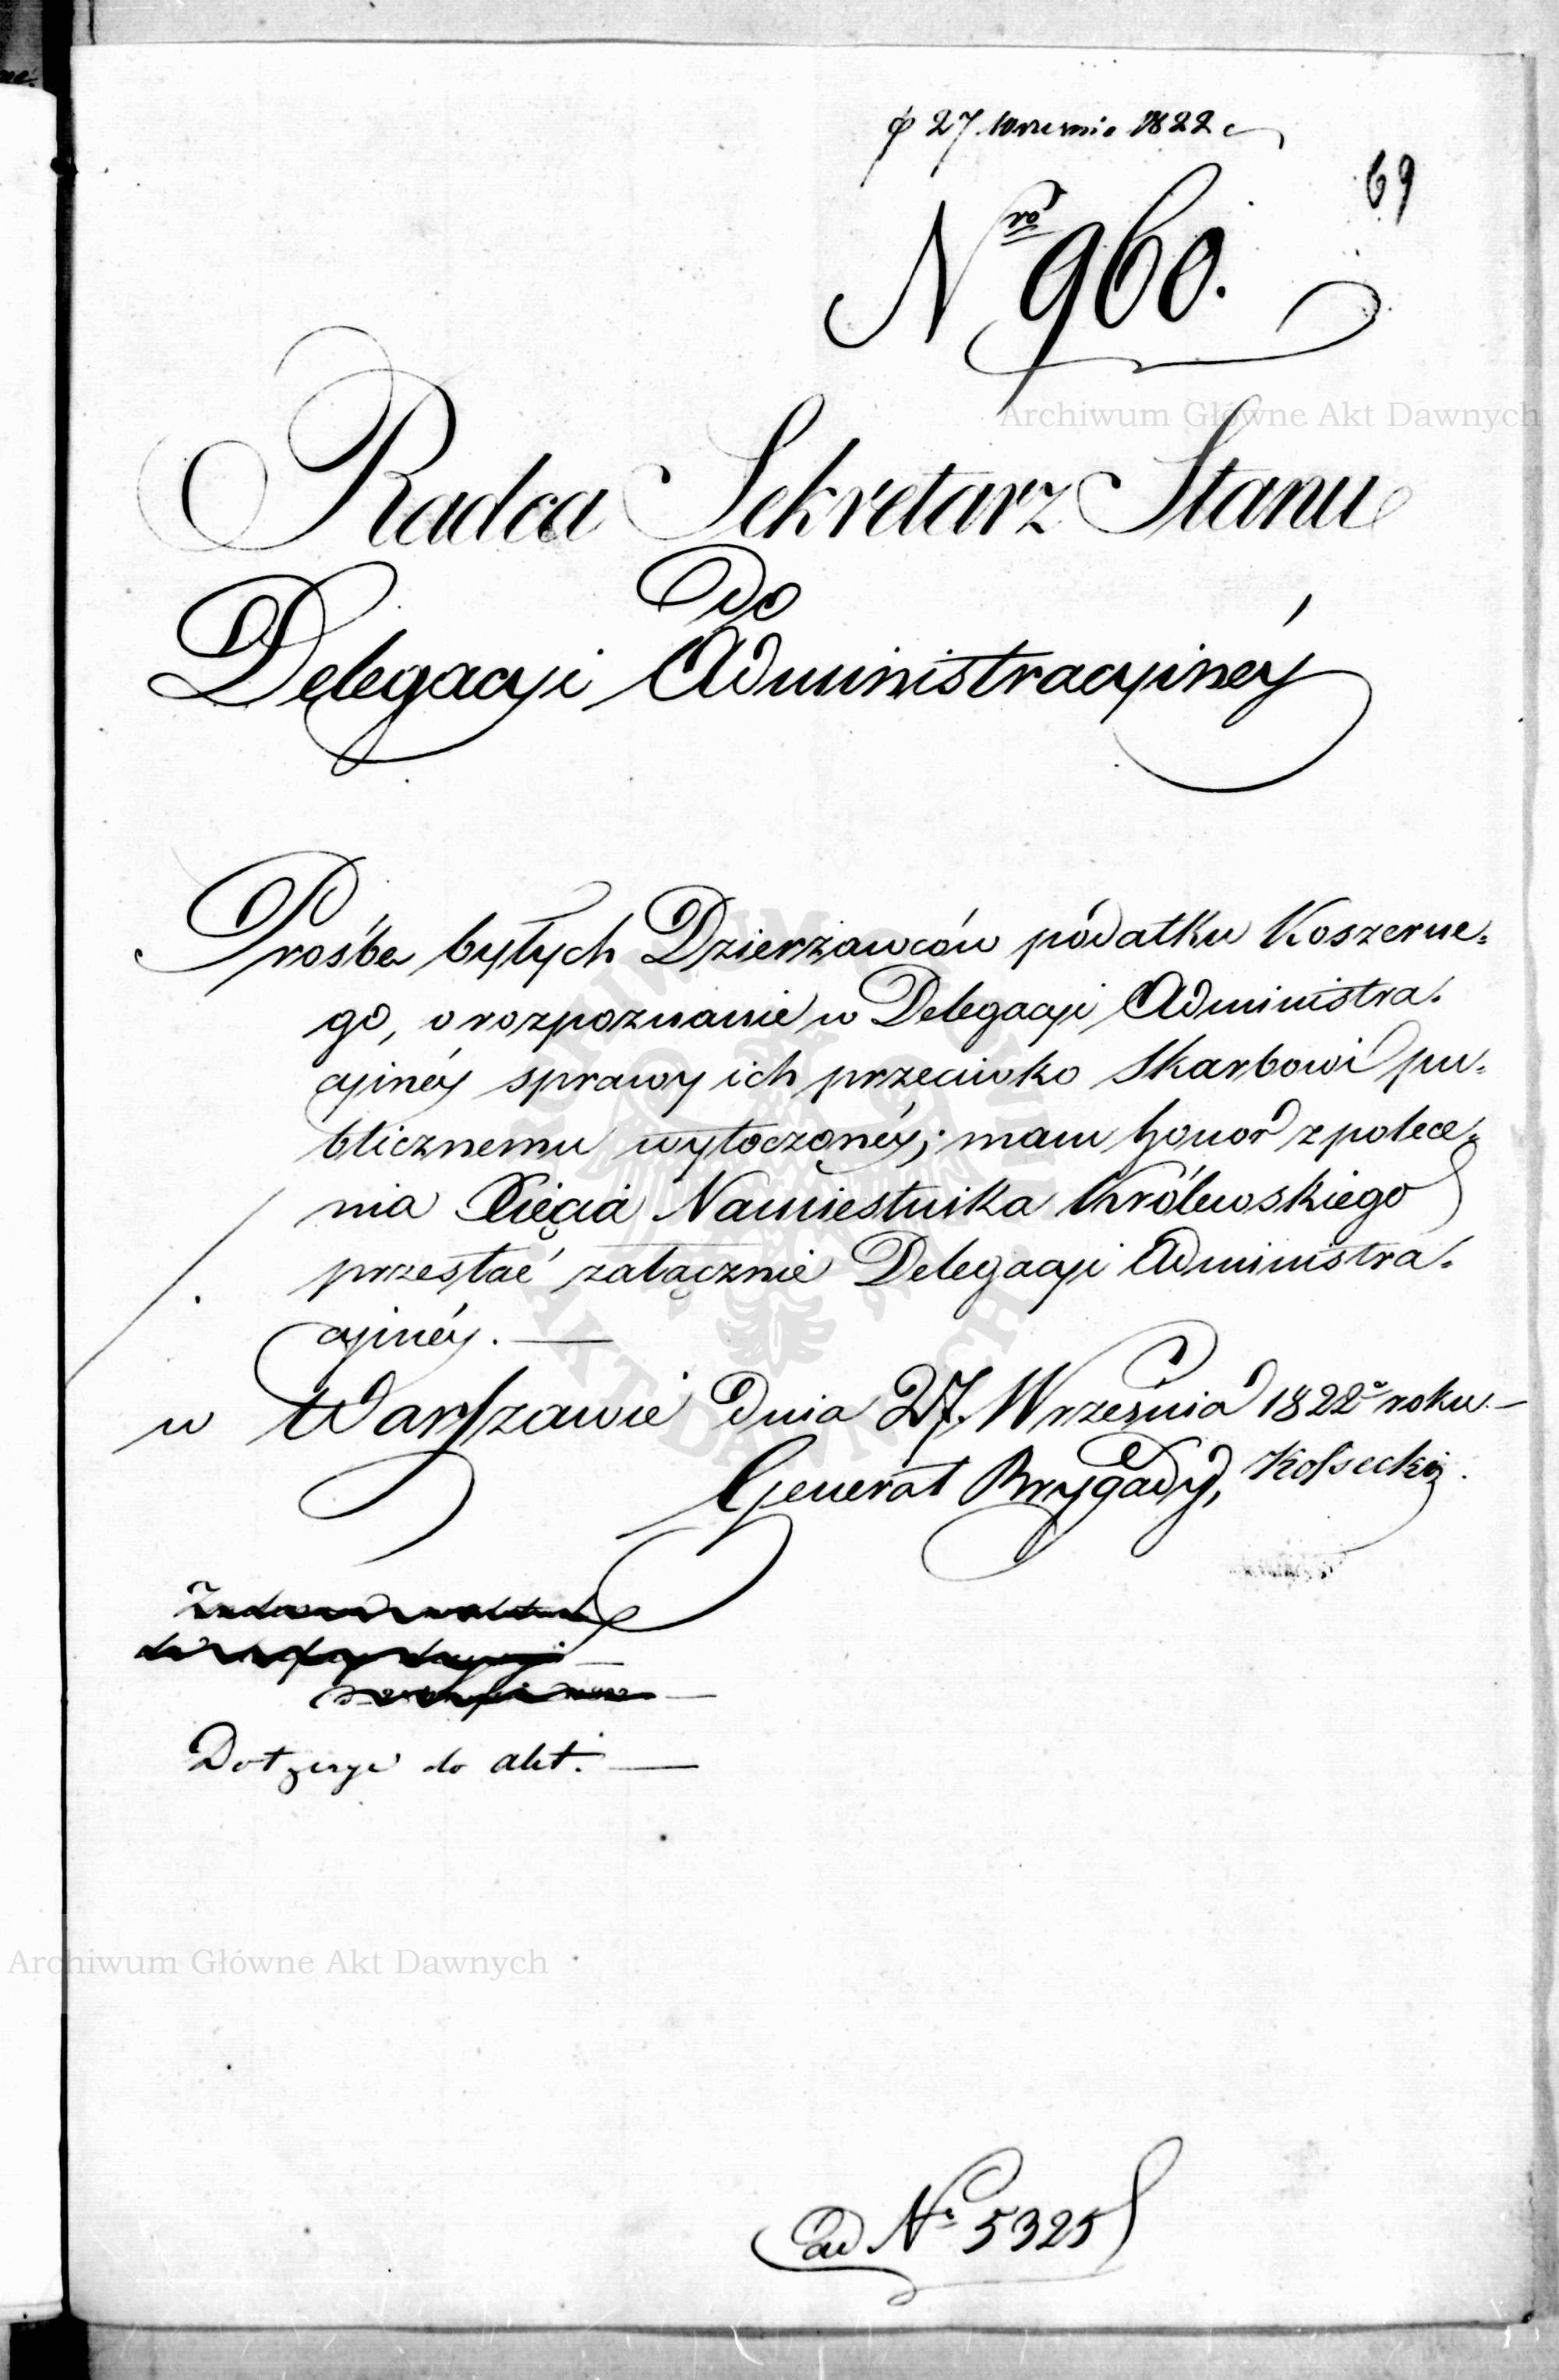 φ 27 Wrzesnia 1822
69
Nro 960.
Radca Sekretarz Stanu
Do
Delegacyi Administracyinéy
Prośbę byłych Dzierżawców podatku Koszerne-
go, o rozpoznanie w Delegacyi Administra-
cyinéy sprawy ich przeciwko Skarbowi pu-
blicznemu wytoczonéy; mam honor z polece-
nia Xięcia Namiestnika Królewskiego
przesłać załącznie Delegacyi Administra-
cyinéy. —
w Warszawie dnia 27. Września 1822o roku. —
Generał Brygady, Kossecki.
do akt. —
ad Nr 5325
Archiwum Główne Akt Dawnych
Archiwum Główne Akt Dawnych
ARCHIWUM GŁÓWNE AKT DAWNYCH